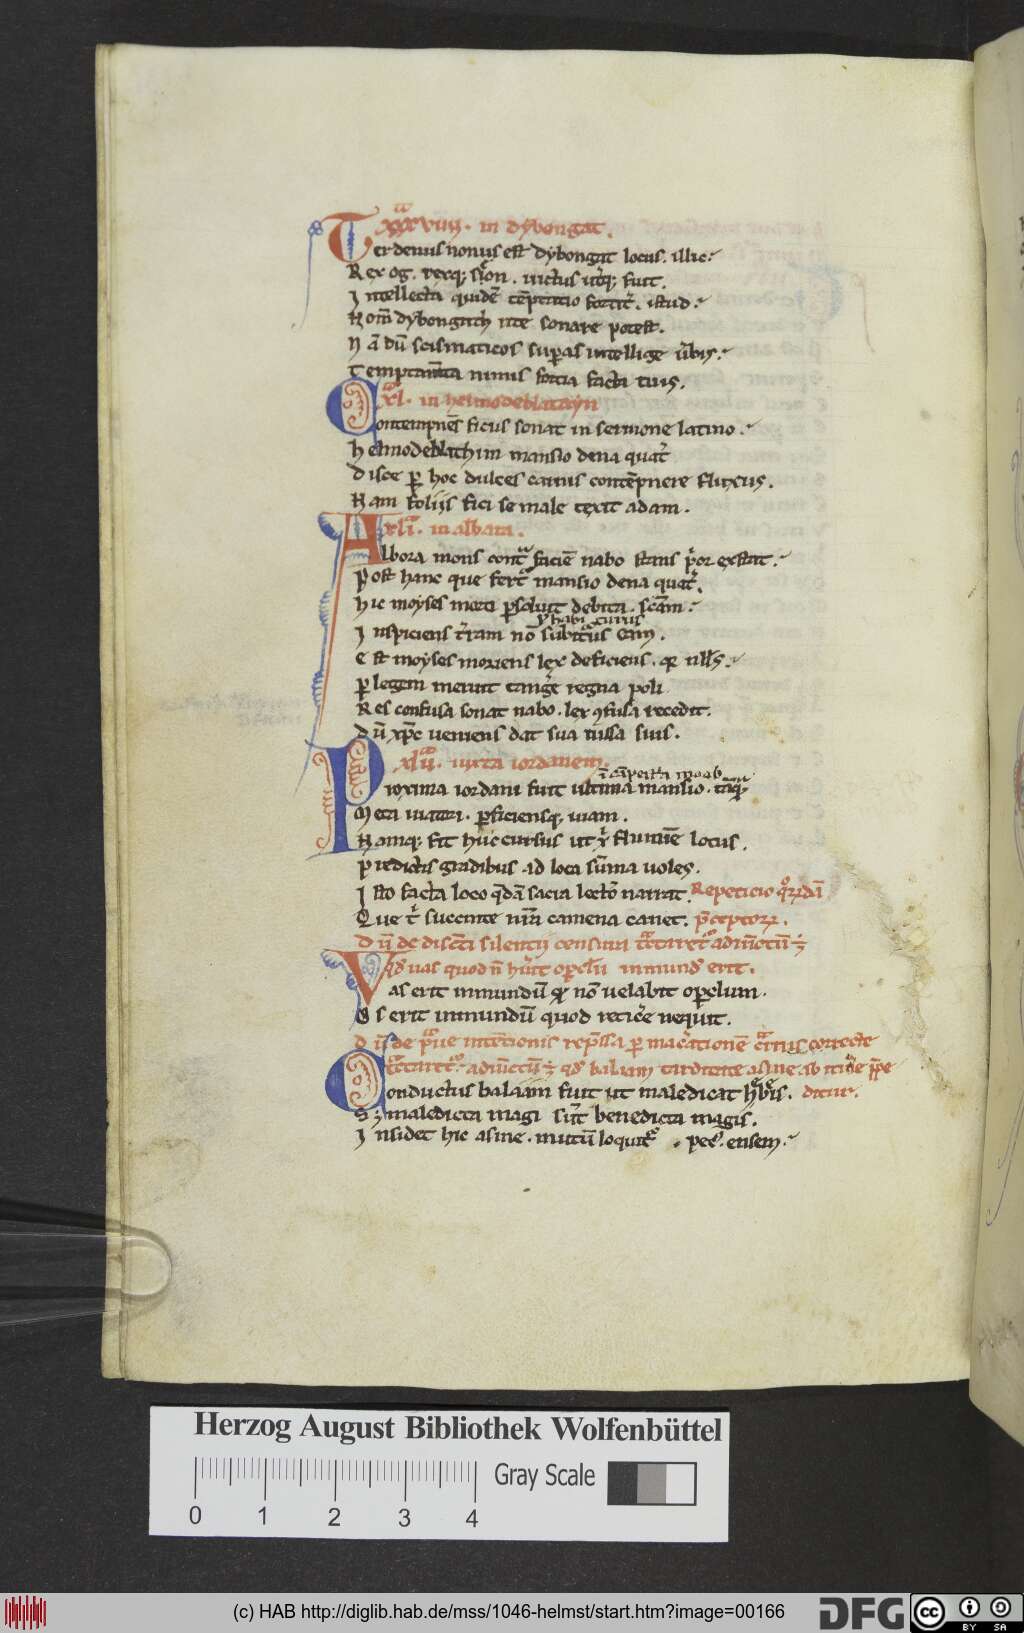 xxxviiii. in dybongat.
Ter denus nonus est dybongat locus. illic
Rex og. rexq; sẏon. uictus utq; fuit.
Intellecta quidē tēptatio fortit̉. istud
Nom̄ dybongath rite sonare potest.
Nā dū scismaticos superas intellige ūbis
Temptam̄ta nimis fortia facta tuis.
xl. in helmodeblatayn
Contempnēs ficus sonat in sermone latino.
helmodeblathim mansio dena quat̉
Disce ꝑ hoc dulces carnis contēpnere fluxus.
Nam foliis fici se male texit adam.
xli. in abbara.
Albora mons cont̃ faciē nabo stans p̉or exstat
Post hanc que fert̉ mansio dena quat̉.
hic moyses morti ꝑsoluit debita. sc̄am
ł habi turus
Inspiciens t̉ram nō subit̉us eam.
Est moyses moriens lex deficiens. qꝛ null̓s.
ꝑ legem meruit tanḡe regna poli
Res confusa sonat nabo. lex ꝯfusa recedit.
Dū xp̄c ueniens dat sua iussa suis.
xlii. iuxta iordanem.
ī cāpestria moab
Proxima iordani fuit ultima mansio. tāq̄;
Meta uiatori. ꝑficiensq; uiam.
Namq; fit huc cursus ut ī flumīe locus.
Predictis gradibus ad loca sūma uoles.
Isto facta loco q̄dā sacra lectō narrat. Repeticio qͦꝛꝛdā
Que t̉ succinte nr̄a camena canet. p̄ceptoꝛꝛ.
Dn̄ de discr̄ti silentii censura tͣctaret̉ adiūctū ē
qd̓ uas quod n̄ hūit oper̄lū inmund̓ erit.
Vas erit inmundū qd̓ nō uelabit operclum.
Os erit inmundū quod reticēe nequit.
Dn̄ de pͣue intētionis rep̄ssa ꝑ mac̄ationē cͣrnis correcte
tͣctaret̉. adiūctū ē qd̓ balaam tarditate asine. ab itiñe p̄pe
Conductus balaam fuit ut maledicat hͤbr̓is. ditur.
S; maledicta magi sūt benedicta magis.
Insidet hic asine. mutū loquit̉ . pec̓. ensem
Herzog August Bibliothek Wolfenbüttel
Gray Scale
0 1 2 3 4
(c) HAB http://diglib.hab.de/mss/1046-helmst/start.htm?image=00166
DFG
cc BY SA